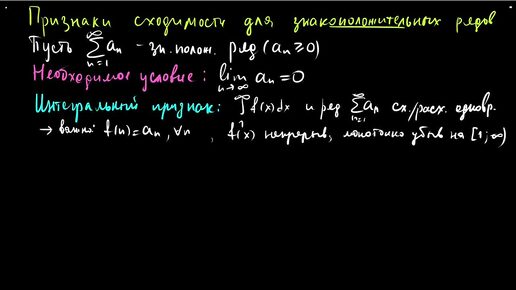 Признаки сходимости для знакоположительных рядов
Пусть ∑_{n=1}^{∞} aₙ - зн. полож. ряд (aₙ ≥ 0)
Необходимое условие: lim_{n→∞} aₙ = 0
Интегральный признак: ∫_{1}^{∞} f(x)dx и ряд ∑_{n=1}^{∞} aₙ сх./расх. одновр.
→ важно: f(n) = aₙ, ∀n , f(x) непрерыв, монотонно убыв на [1; ∞)